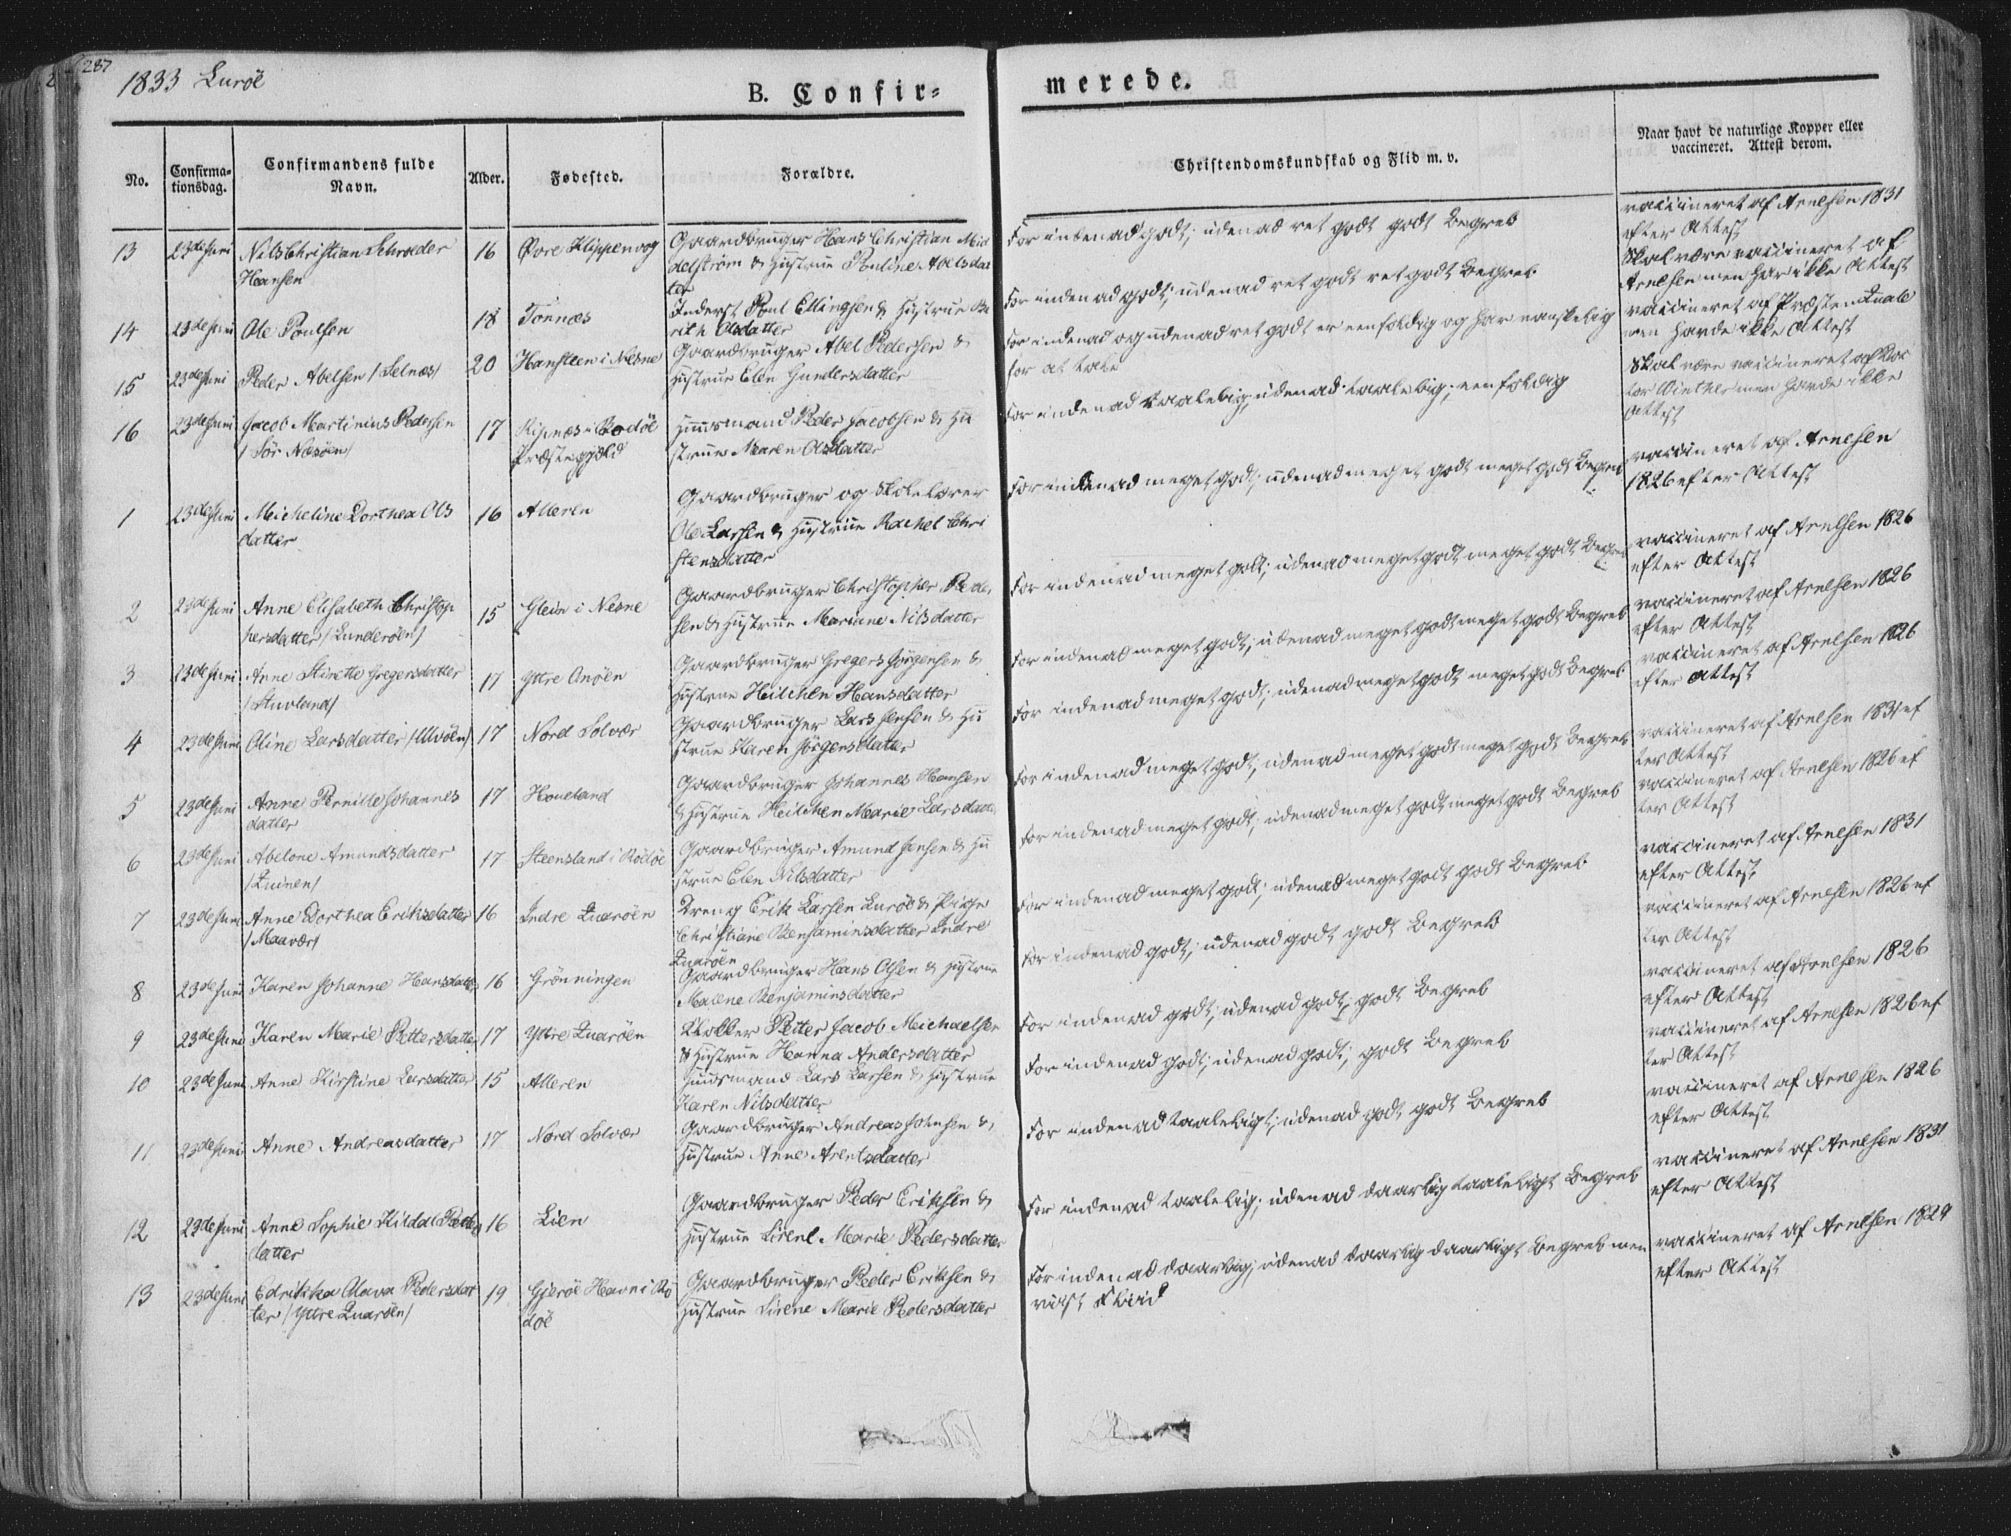 287
1833 Luröe
B. Confir=
merede.
No.
Confirma-
tionsdag.
Confirmandens fulde
Navn.
Alder.
Fødested.
Forældre.
Christendomskundskab og Flid m. v.
Naar havt de naturlige Kopper eller
vaccineret. Attest derom.
13 23de Juni Nils Christian Schrøder 16 Øvre Klippenvog Gaardbruger Hans Christian Mid
Hansen
delström & Hustrue Pauline Abelsdat
ter
For indenad godt; udenad ret godt godt Begreb
vaccineret af Arnelsen 1831
efter Attest
14 23de Juni Ole Poulsen 18 Tonnæs Inderst Poul Ellingsen & Hustrue Be
rith Olsdatter
For indenad godt; udenad ret godt ret godt Begreb
Skal være vaccineret af
Arnelsen men har ikke Attest
15 23de Juni Peder Abelsen /Selnæs/ 20 Hansteen i Nesne Gaardbruger Abel Pedersen &
Hustrue Elen Gundersdatter
For indenad og udenad ret godt er eenfoldig og har vanskelig
for at tale
vaccineret af Præsten Zuale
men havde ikke Attest
16 23de Juni Jacob Martinius Pedersen 17 Ripnæs i Bodöe Huusmand Peder Jacobsen & Hu
/Sör Næsöen/
Præstegjæld
strue Maren Olsdatter
For indenad taalelig; udenad taalelig; eenfoldig
Skal være vaccineret af Doc
tor Winther men havde ikke
Attest
1 23de Juni Micheline Dorthea Ols 16 Alleren Gaardbruger og Skolelærer
datter
Ole Larsen & Hustrue Rachel Chri
stensdatter
For indenad meget godt; udenad meget godt meget godt Begreb
vaccineret af Arnelsen
1826 efter Attest
2 23de Juni Anne Elisabeth Christop 15 Glein i Nesne Gaardbruger Christopher Peder
hersdatter /Lunderöen/
sen & Hustrue Mariane Nilsdatter
For indenad meget godt; udenad meget godt meget godt Begreb
vaccineret af Arnelsen 1826
efter Attest
3 23de Juni Anne Sirette Gregersdatter 17 Yttre Onöen Gaardbruger Gregers Jörgensen &
/Stuvland/
Hustrue Heilchen Hansdatter
For indenad meget godt; udenad meget godt meget godt Begreb
vaccineret af Arnelsen 1826
efter Attest
4 23de Juni Oline Larsdatter /Ulvöen/ 17 Nord Solvær Gaardbruger Lars Jensen & Hu
strue Karen Jörgensdatter
For indenad meget godt; udenad meget godt meget godt Begreb
vaccineret af Arnelsen 1826
efter Attest
5 23de Juni Anne Pernille Johannes 17 Houeland Gaardbruger Johannes Hansen
datter
& Hustrue Heilchen Marie Larsdatter
For indenad meget godt; udenad meget godt meget godt Begreb
vaccineret af Arnelsen 1831 ef
ter Attest
6 23de Juni Abelone Amundsdatter 17 Steensland i Rödöe Gaardbruger Amund Jensen & Hu
/Zuinen/
strue Elen Nilsdatter
For indenad meget godt; udenad meget godt meget godt Begreb
vaccineret af Arnelsen 1826 ef
ter Attest
7 23de Juni Anne Dorthea Eriksdatter 16 Indre Zuaröen Dreng Erik Larsen Luröe & Pige
/Maavær/
Christiane Benjaminsdatter Indre
Zuaröen
For indenad meget godt; udenad meget godt godt Begreb
vaccineret af Arnelsen 1831
efter Attest
8 23de Juni Karen Johanne Hansdatter 16 Grönningen Gaardbruger Hans Olsen & Hustrue
Malene Benjaminsdatter
For indenad godt; udenad godt godt Begreb
vaccineret af Arnelsen 1826 ef
ter Attest
9 23de Juni Karen Marie Pettersdatter 17 Yttre Zuaröen Klokker Petter Jacob Meichaelsen
& Hustrue Hanna Andersdatter
For indenad godt; udenad godt; godt Begreb
vaccineret af Arnelsen 1826
efter Attest
10 23de Juni Anne Kirstine Larsdatter 15 Alleren Huusmand Lars Larsen & Hustrue
Karen Nilsdatter
For indenad godt; udenad godt; godt Begreb
vaccineret af Arnelsen 1826 ef
ter Attest
11 23de Juni Anne Andreasdatter 17 Nord Solvær Gaardbruger Andreas Johnsen &
Hustrue Anne Arentsdatter
For indenad taaleligt; udenad godt godt Begreb
vaccineret af Arnelsen 1826
efter Attest
12 23de Juni Anne Sophie Hilda Peders 16 Lien Gaardbruger Peder Eriksen &
datter
Hustrue Sirene Marie Pedersdatter
For indenad taalelig; udenad daarlig taaleligt Begreb
vaccineret af Arnelsen 1831
efter Attest
13 23de Juni Edrikka Olava Pedersdat 19 Gjeröe Havn i Rö Gaardbruger Peder Eriksen &
ter /Yttre Zuaröen/
döe
Hustrue Sirene Marie Pedersdatter
For indenad daarlig; udenad daarlig daarligt Begreb men
viist Fliid
vaccineret af Arnelsen 1829
efter Attest